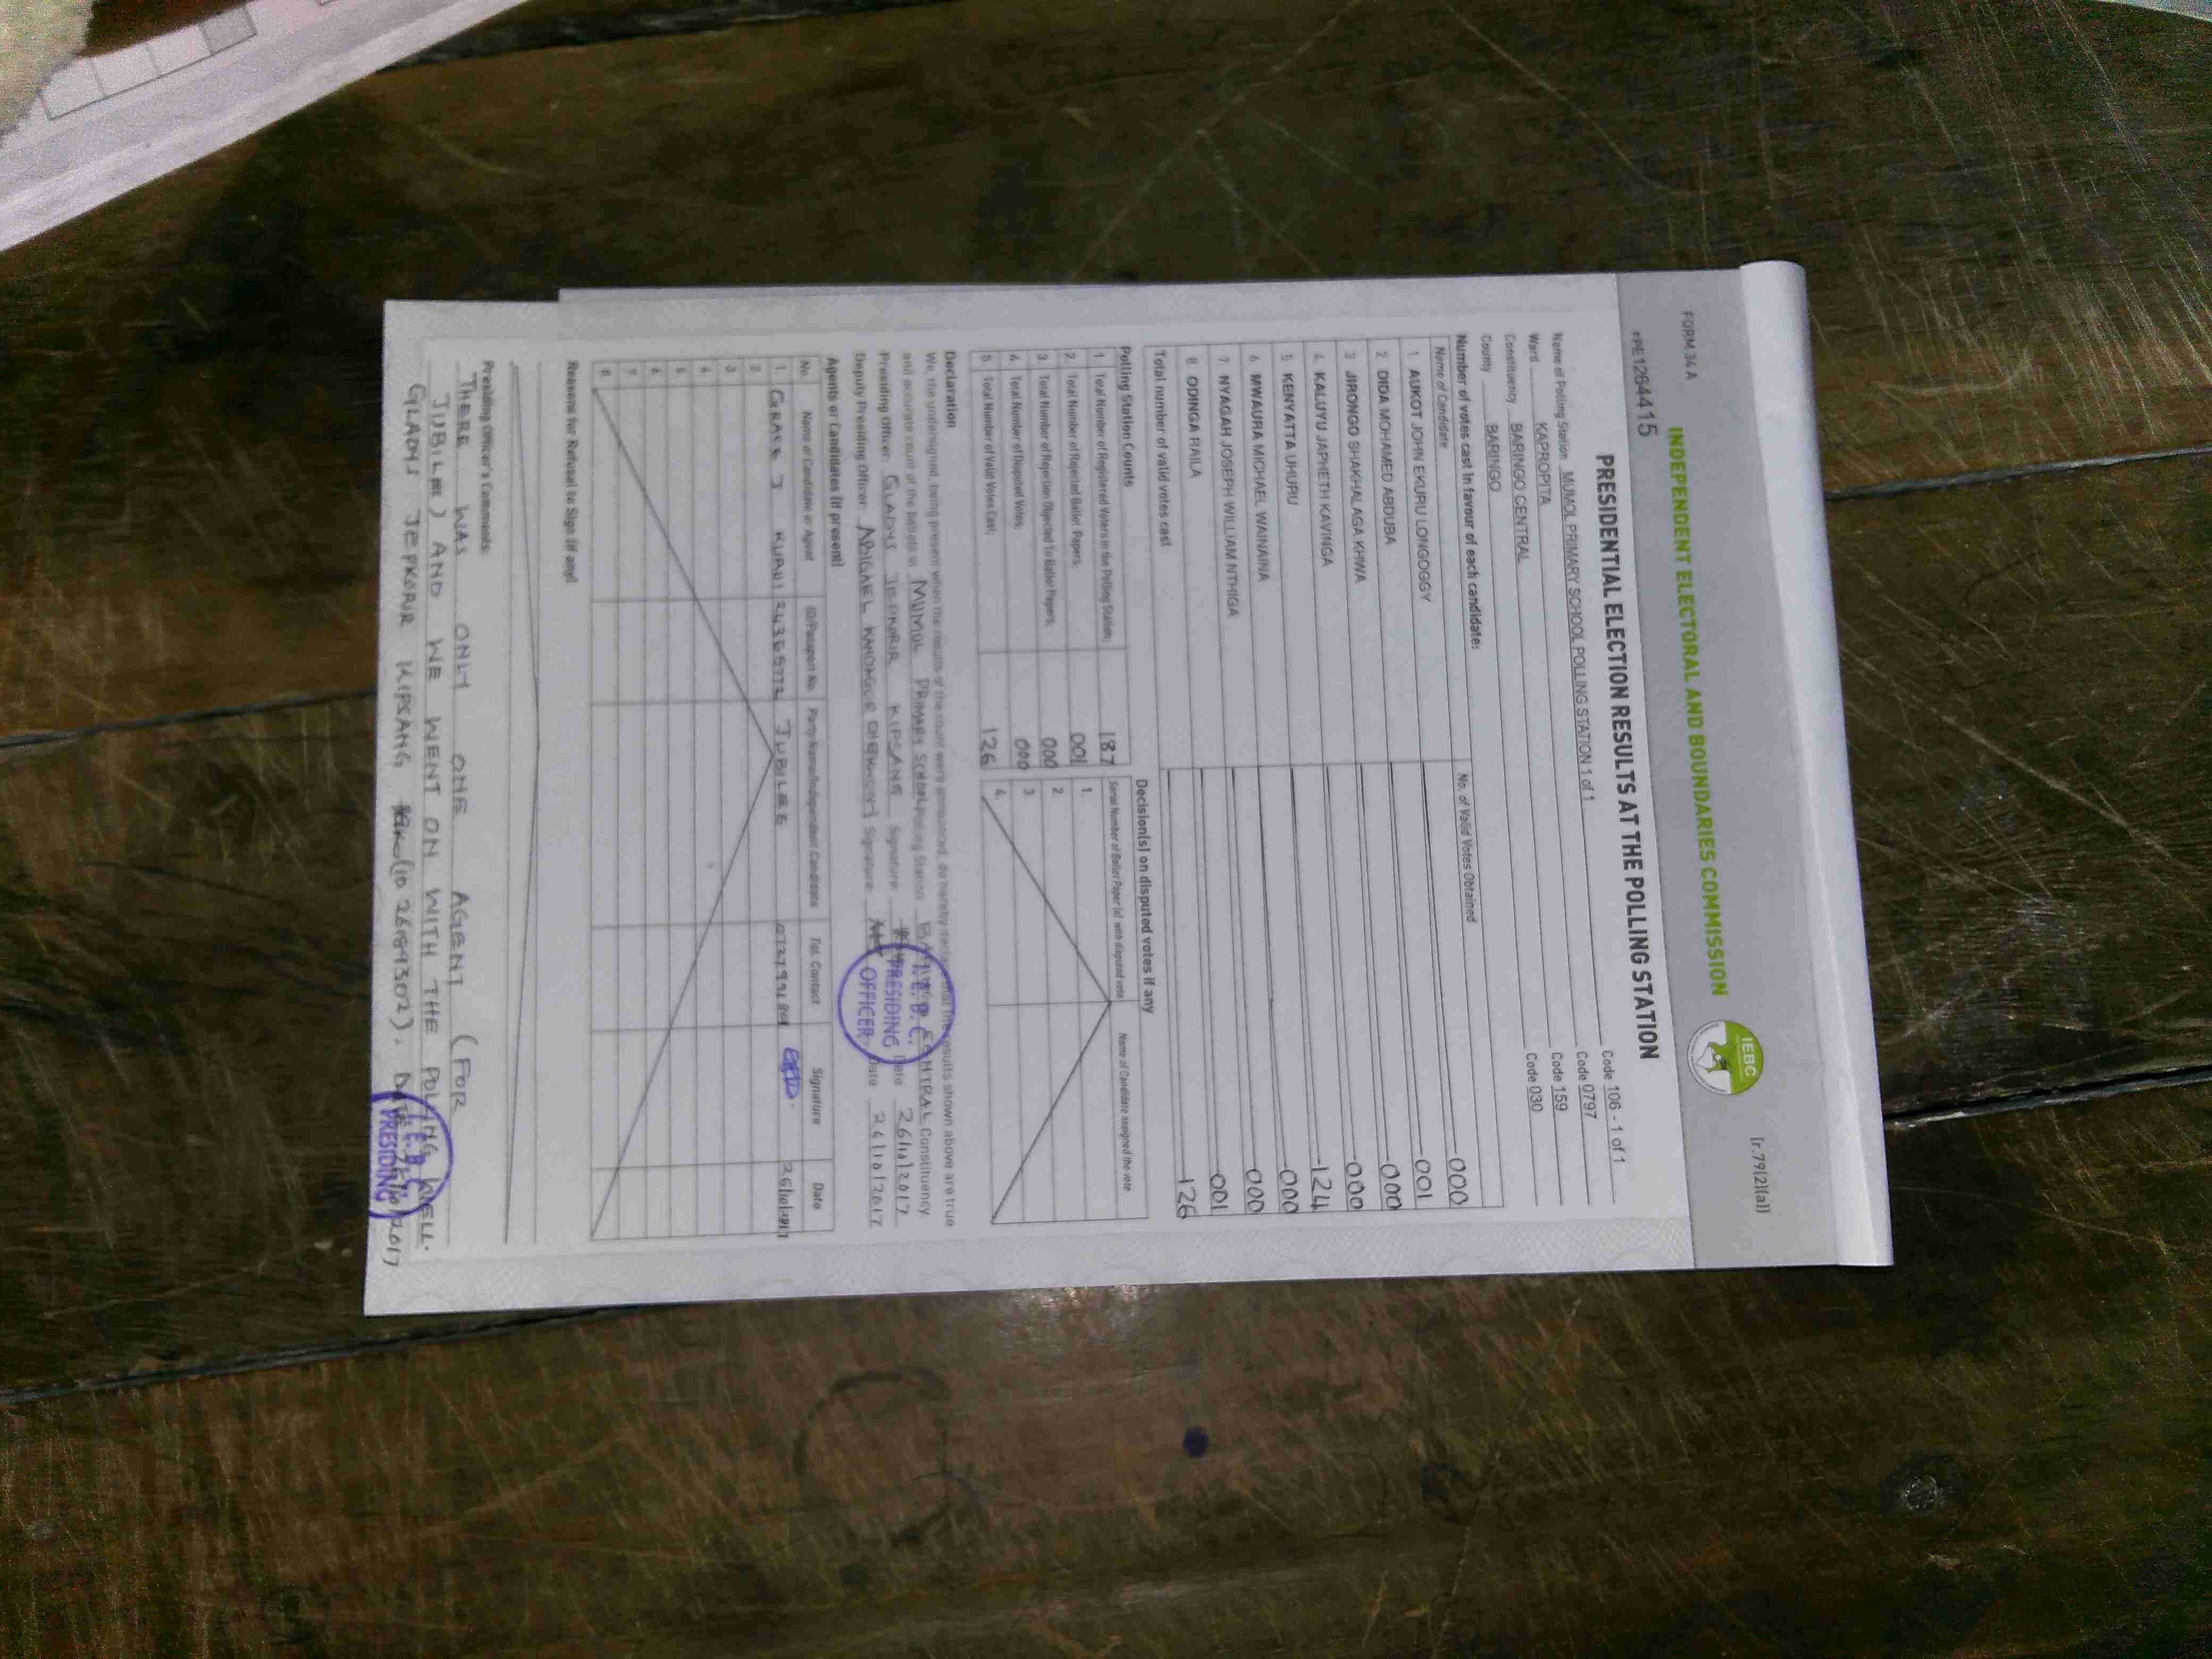 FORM 34 A
(r.79(2)(a))
INDEPENDENT ELECTORAL AND BOUNDARIES COMMISSION
IEBC
PRE1264415
PRESIDENTIAL ELECTION RESULTS AT THE POLLING STATION
Name of Polling Station MUMOL PRIMARY SCHOOL POLLING STATION 1 of 1 Code 106 - 1 of 1
Ward KAPROPITA Code 0797
Constituency BARINGO CENTRAL Code 159
County BARINGO Code 030
Number of votes cast in favour of each candidate:
Name of Candidate No. of Valid Votes Obtained
1 AUKOT JOHN EKURU LONGOGGY 000
2 DIDA MOHAMED ABDUBA 001
3 JIRONGO SHAKHALAGA KHWA 000
4 KALUYU JAPHETH KAVINGA 000
5 KENYATTA UHURU 124
6 MWAURA MICHAEL WAINAINA 000
7 NYAGAH JOSEPH WILLIAM NTHIGA 000
8 ODINGA RAILA 001
Total number of valid votes cast 126
Polling Station Counts
1. Total Number of Registered Voters in the Polling Station: 187
2. Total Number of Rejected Ballot Papers: 001
3. Total Number of Rejection Objected To Ballot Papers: 000
4. Total Number of Disputed Votes: 000
5. Total Number of Valid Votes Cast: 126
Decision(s) on disputed votes if any
Serial Number of Ballot Paper (s) with disputed vote Name of Candidate assigned the vote
1.
2.
3.
4.
Declaration
We, the undersigned, being present when the results of the count were announced, do hereby declare that the results shown above are true
and accurate count of the ballots in MUMOL PRIMARY SCHOOL Polling Station BARINGO CENTRAL Constituency.
Presiding Officer: GLADYS JEPKORIR KIPSANG Signature Date 26/10/2017
Deputy Presiding Officer: ABIGAEL Signature Date 26/10/2017
I.E.B.C.
PRESIDING
OFFICER
Agents or Candidates (if present)
No. Name of Candidate or Agent ID/Passport No. Party Name/Independent Candidate Tel. Contact Signature Date
1 GRACE J JUBILEE 26/10/2017
2
3
4
5
6
7
8
Reasons for Refusal to Sign (if any)
Presiding Officer's Comments:
THERE WAS ONLY ONE AGENT (FOR
JUBILEE) AND WE WENT ON WITH THE POLLING WELL.
GLADYS JEPKORIR KIPSANG DATE 26/10/2017
I.E.B.C.
PRESIDING